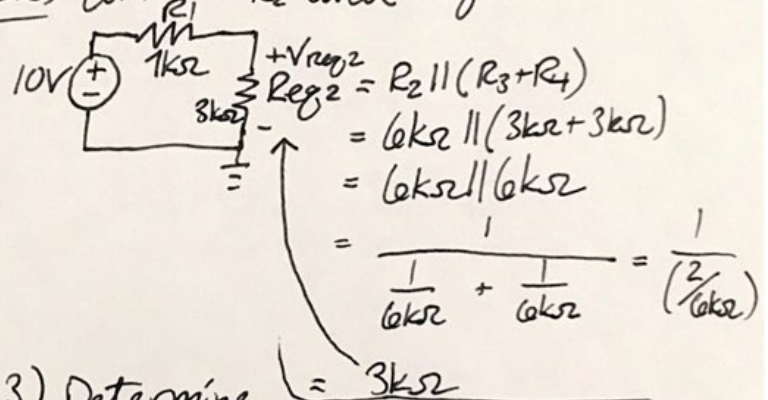 R1
10V + − 1kΩ
+Vreq2
3kΩ − Req2 = R2 || (R3+R4)
= 6kΩ || (3kΩ+3kΩ)
= 6kΩ || 6kΩ
= 1 / (1/6kΩ + 1/6kΩ) = 1 / (2/6kΩ)
3) Determine = 3kΩ